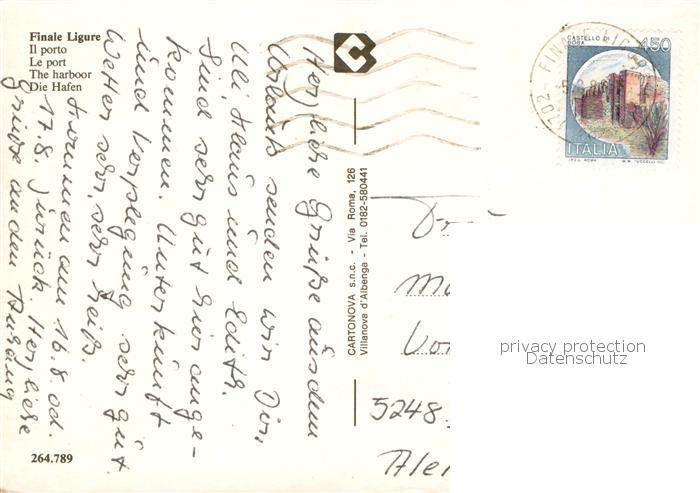 Finale Ligure
Il porto
Le port
The harboor
Die Hafen
Herzliche Grüße aus dem
Urlaub senden wir Dir,
Uli, Klaus und Edith.
Sind sehr gut hier ange-
kommen. Unterkunft
und Verpflegung sehr gut
Wetter sehr, sehr heiß.
kommen am 16.8. od.
17.8. zurück. Herzliche
Grüße an den
264.789
CARTONOVA s.n.c. - Via Roma, 126
Villanova d'Albenga - Tel. 0182-580441
CASTELLO DI
450
ITALIA
I.P.Z.S. ROMA
FINALE LIGURE
5248
privacy protection
Datenschutz